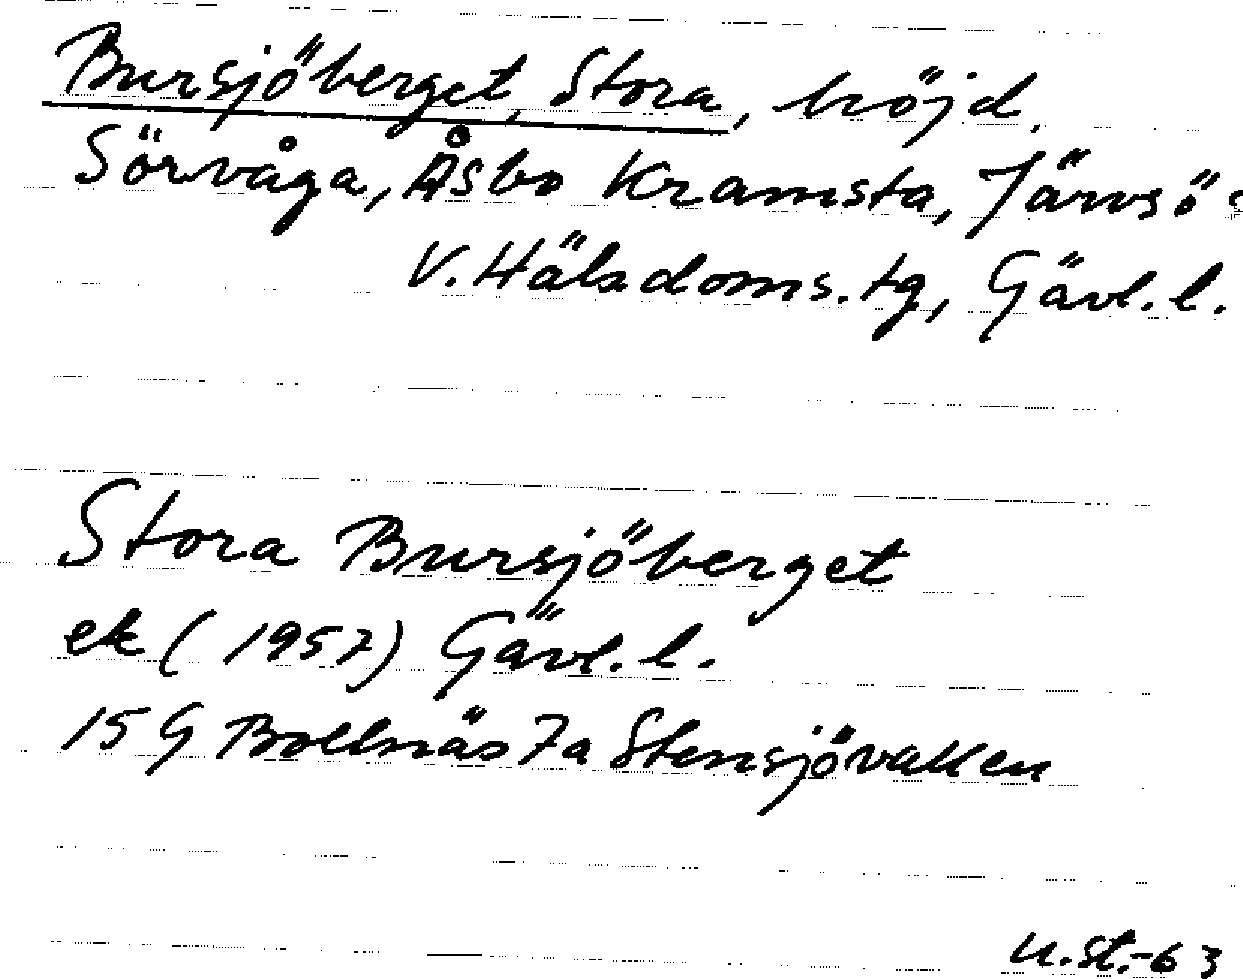 Bursjöberget, Stora, höjd.
Sörvåga, Åsbo Kramsta, Järvsö s
V. Hälsdoms.tg, Gävl. l.
Stora Bursjöberget
ek (1957) Gävl. l.
15 G Bollnäs 7a Stensjövallen
u.st.-63